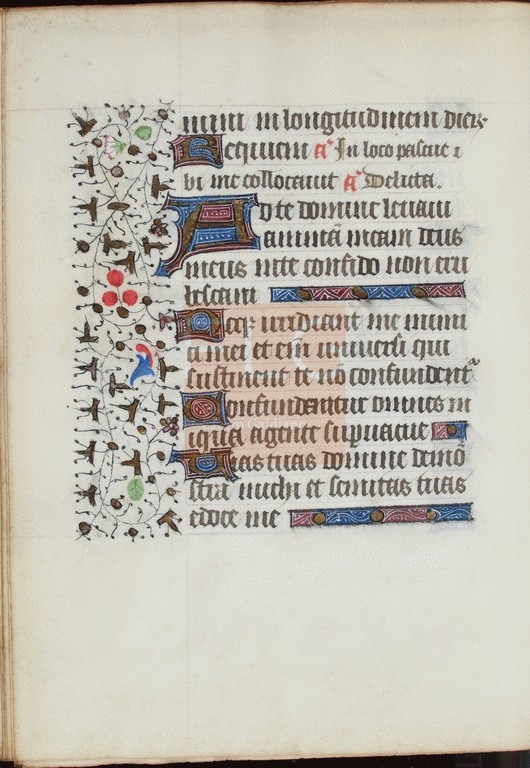 mini in longitudinem dier
Requiem aͣ In loco pascue i
bi me collocavit aͣ Delicta.
Ad te domine levavi
animā meam deus
meus in te confido non eru
bescam
Neqꝫ irrideant me inimi
ci mei et eni universi qui
sustinent te nō confundentᷣ
Confundantur omnes in
iqua agentes supvacue
Vias tuas domine demō
stra michi et semitas tuas
edoce me